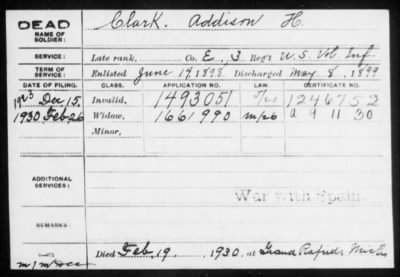 DEAD
NAME OF SOLDIER: Clark. Addison H.
SERVICE: Late rank, Co. E, 3. Reg't U.S. Vol. Inf.
TERM OF SERVICE: Enlisted June 14, 1898. Discharged May 8, 1899
DATE OF FILING. CLASS. APPLICATION NO. LAW. CERTIFICATE NO.
1923 Dec 15. Invalid, 1493051 1246752
1930 Feb 26 Widow, 1661990 m/26 a 9 11 30
Minor,
ADDITIONAL SERVICES:
War with Spain.
REMARKS
Died Feb. 19, 1930, at Grand Rapids Mich